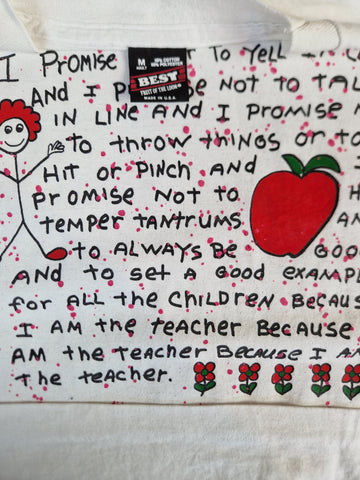 I Promise TO Yell
M
ADULT
50% COTTON
50% POLYESTER
BEST
FRUIT OF THE LOOM
MADE IN U.S.A.
AND I P SE NOT to TAL
IN LINE AND I PROMISE
to throw things or to
Hit or Pinch AND
Promise Not to
temper tantrums AN
to ALWAYS Be Goo
AND to set A Good exAmp
for ALL the Children Becau
I AM the teAcher BecAuse
AM the teAcher BecAuse I AM
the teAcher.